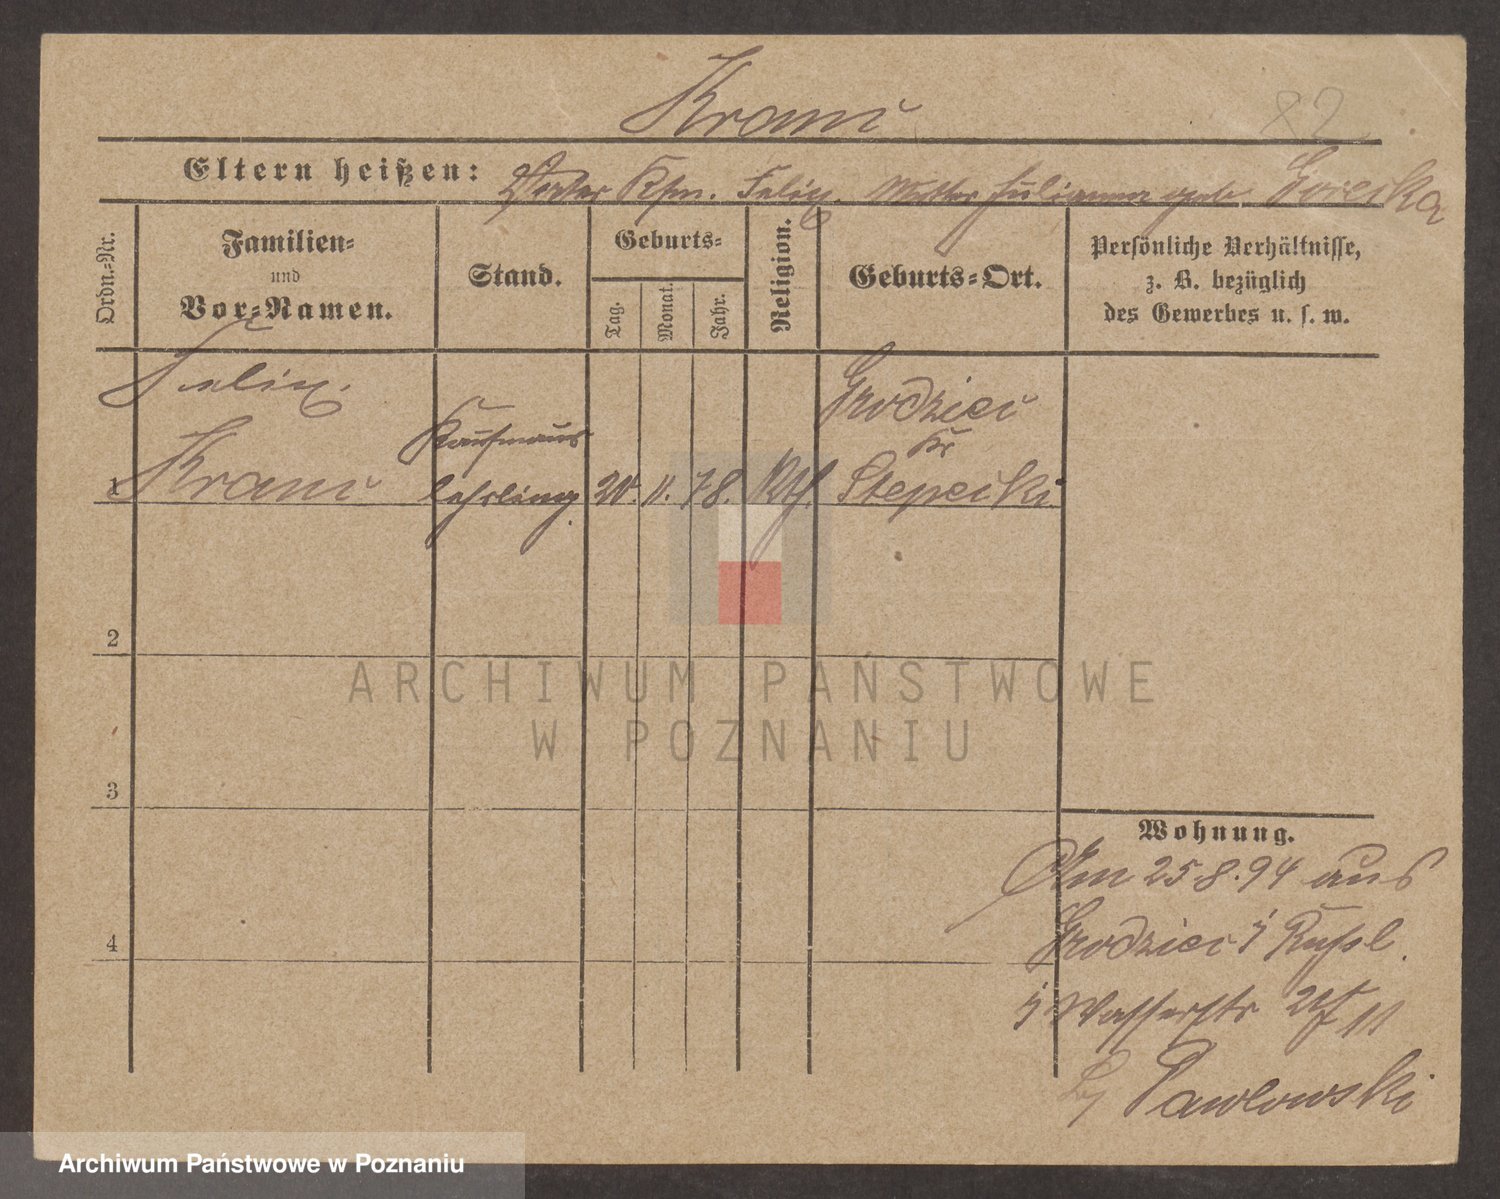 Krauc
82
Eltern heißen: Vater Kfm. Felix. Mutter Julianna geb. Gorecka
Ordn.-Nr.
Familien-
und
Vor-Namen.
Stand.
Geburts-
Tag.
Monat.
Jahr.
Religion.
Geburts-Ort.
Persönliche Verhältnisse,
z. B. bezüglich
des Gewerbes u. s. w.
Felix.
Kaufmanns
Grodziec
Kr
1 lehrling 20. 11. 78. Kth. Stepecki
2
3
4
Wohnung.
Am 25 8. 94 aus
Grodziec i Russl.
i Wasserstr 11
by Pawlowski
ARCHIWUM PAŃSTWOWE
W POZNANIU
Archiwum Państwowe w Poznaniu